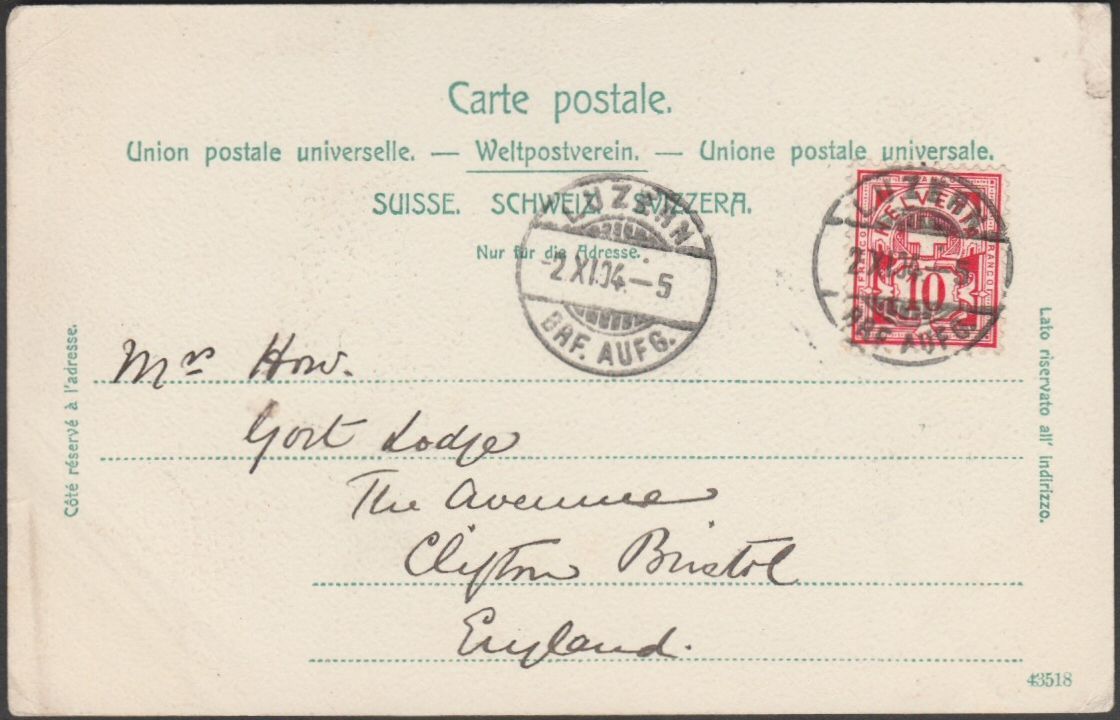 Carte postale.
Union postale universelle. — Weltpostverein. — Unione postale universale.
SUISSE. SCHWEIZ. SVIZZERA.
Nur für die Adresse.
LUZERN
-2.XI.04.-5
BRF. AUFG.
LUZERN
2.XI.04.-5
BRF. AUFG.
HELVETIA
FRANCO
FRANCO
10
Côté réservé à l'adresse.
Lato riservato all' indirizzo.
Mrs How.
Gort Lodge
The Avenue
Clifton Bristol
England.
43518